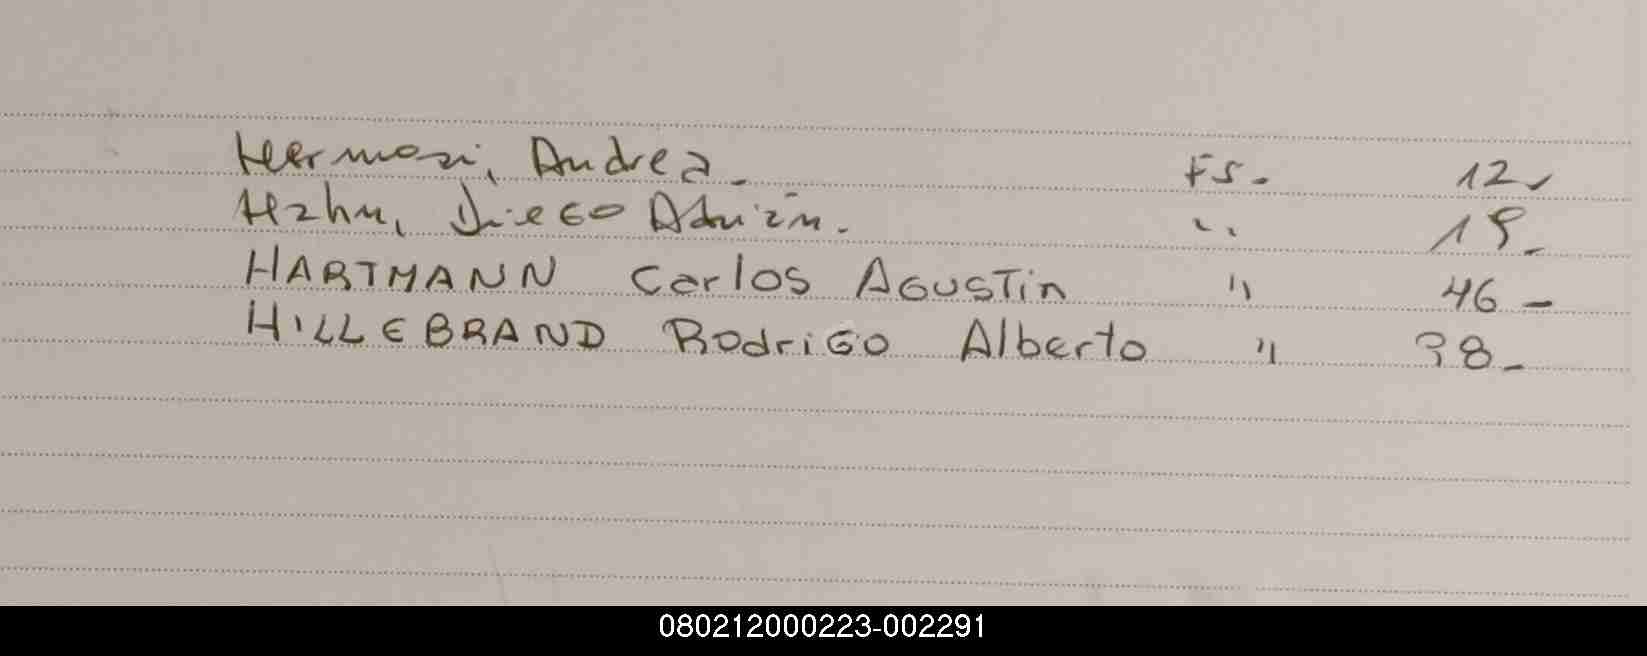 Hermosi, Andrea. FS. 12,
Hahn, Diego Adrián. " 19.
HARTMANN Carlos AGUSTin " 46 -
HILLEBRAND RodriGo Alberto " 98.
080212000223-002291